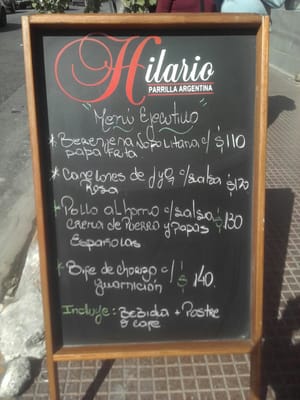 Hilario
PARRILLA ARGENTINA
"Menú Ejecutivo"
* Berenjena Napolitana c/ $110
papa frita
* Canelones de JyQ c/salsa $120
Rosa
* Pollo al horno c/salsa $130
crema de puerro y Papas
Españolas
* Bife de chorizo c/ $140.
guarnición
Incluye: Bebida + Postre
ó café